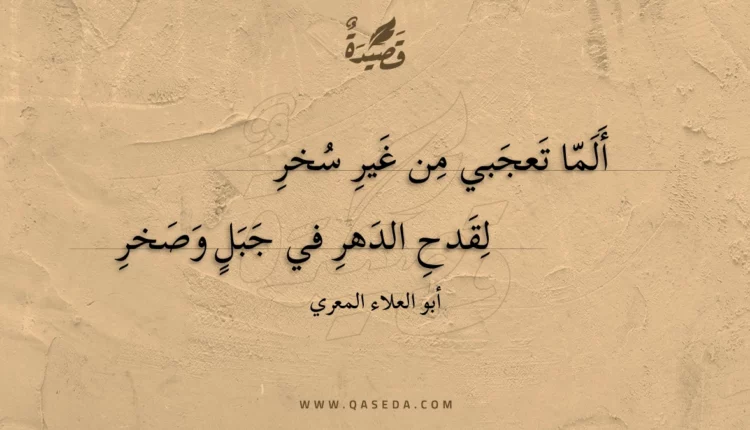 قَصِيدَةٌ
أَلَمّا تَعجَبي مِن غَيرِ سُخرِ
لِقَدحِ الدَهرِ في جَبَلٍ وَصَخرِ
أبو العلاء المعري
WWW.QASEDA.COM